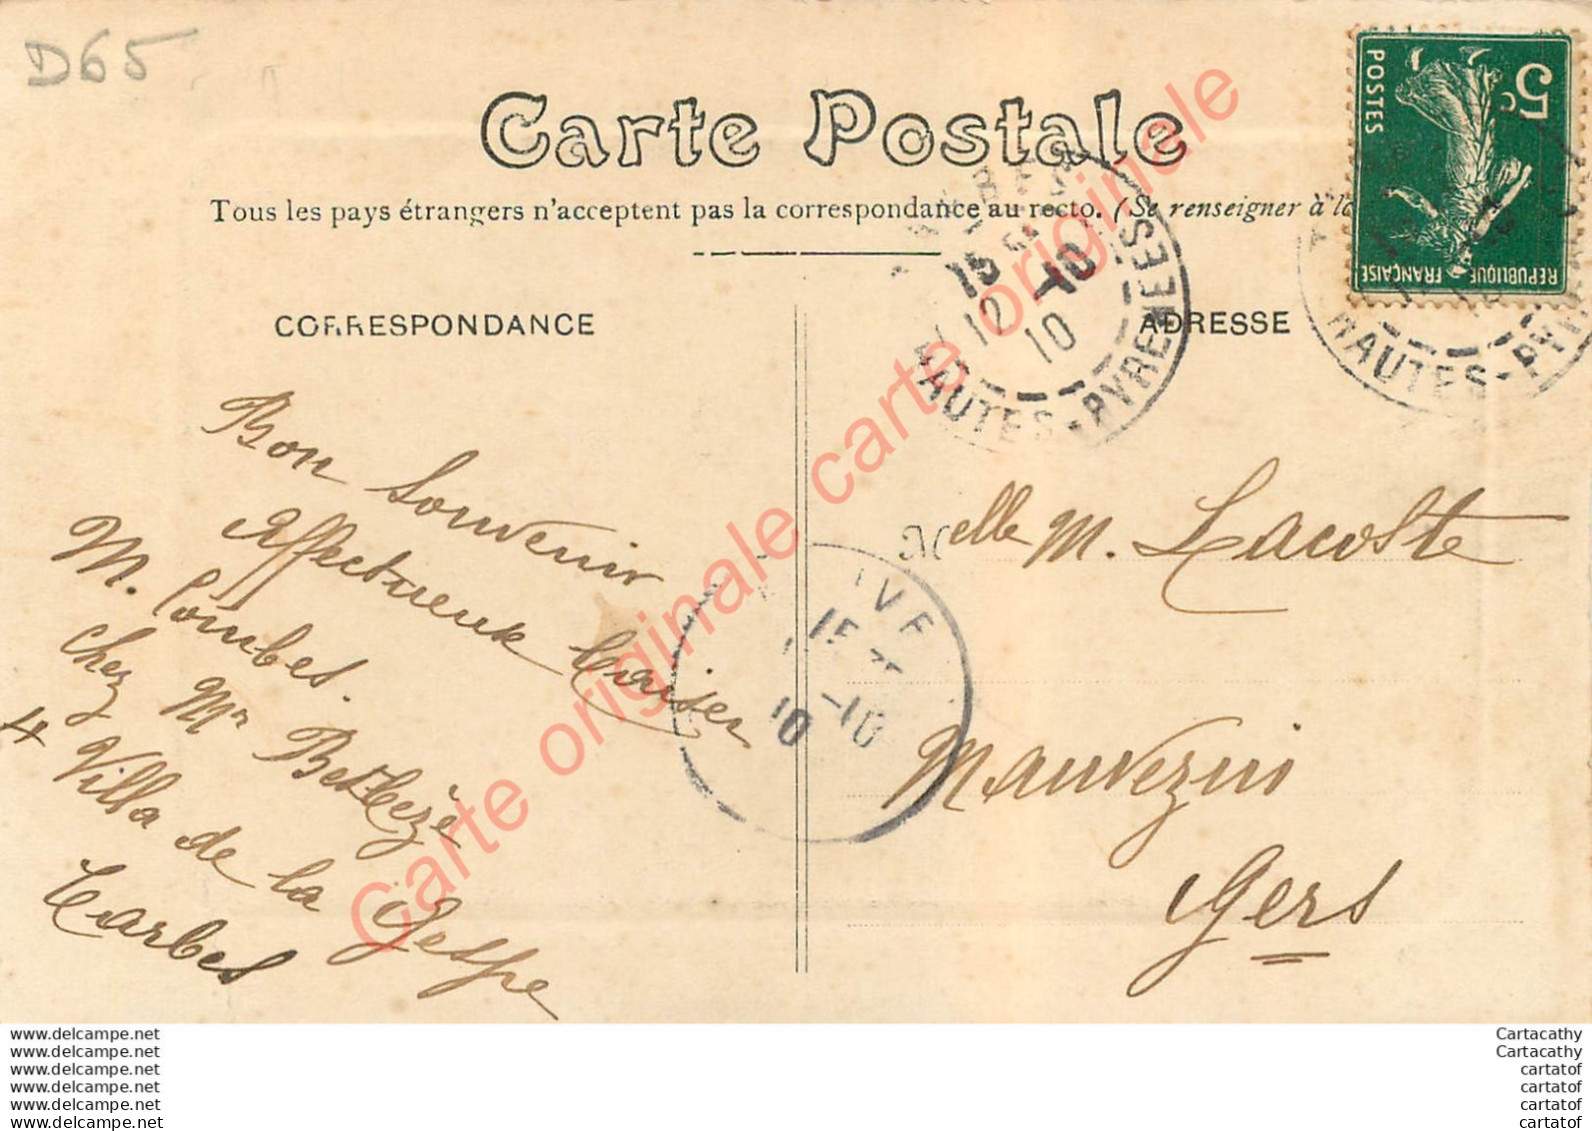 D65
Carte Postale
Tous les pays étrangers n'acceptent pas la correspondance au recto. (Se renseigner à la
CORRESPONDANCE
ADRESSE
5c
POSTES
REPUBLIQUE FRANÇAISE
15 10
12
10
HAUTES-PYRENEES
HAUTES-PYR
Bon Souvenir
Affectueux baiser
M. Combes.
chez Mr Betbezè
4 Villa de la Gespe
Tarbes
Melle M. Lacoste
Mauvezin
Gers
15
10 -10
Carte originale carte originale carte originale
delcampe.net
delcampe.net
delcampe.net
delcampe.net
delcampe.net
delcampe.net
Cartacathy
Cartacathy
cartatof
cartatof
cartatof
cartatof